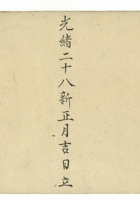 光緒二十八新正月吉日立